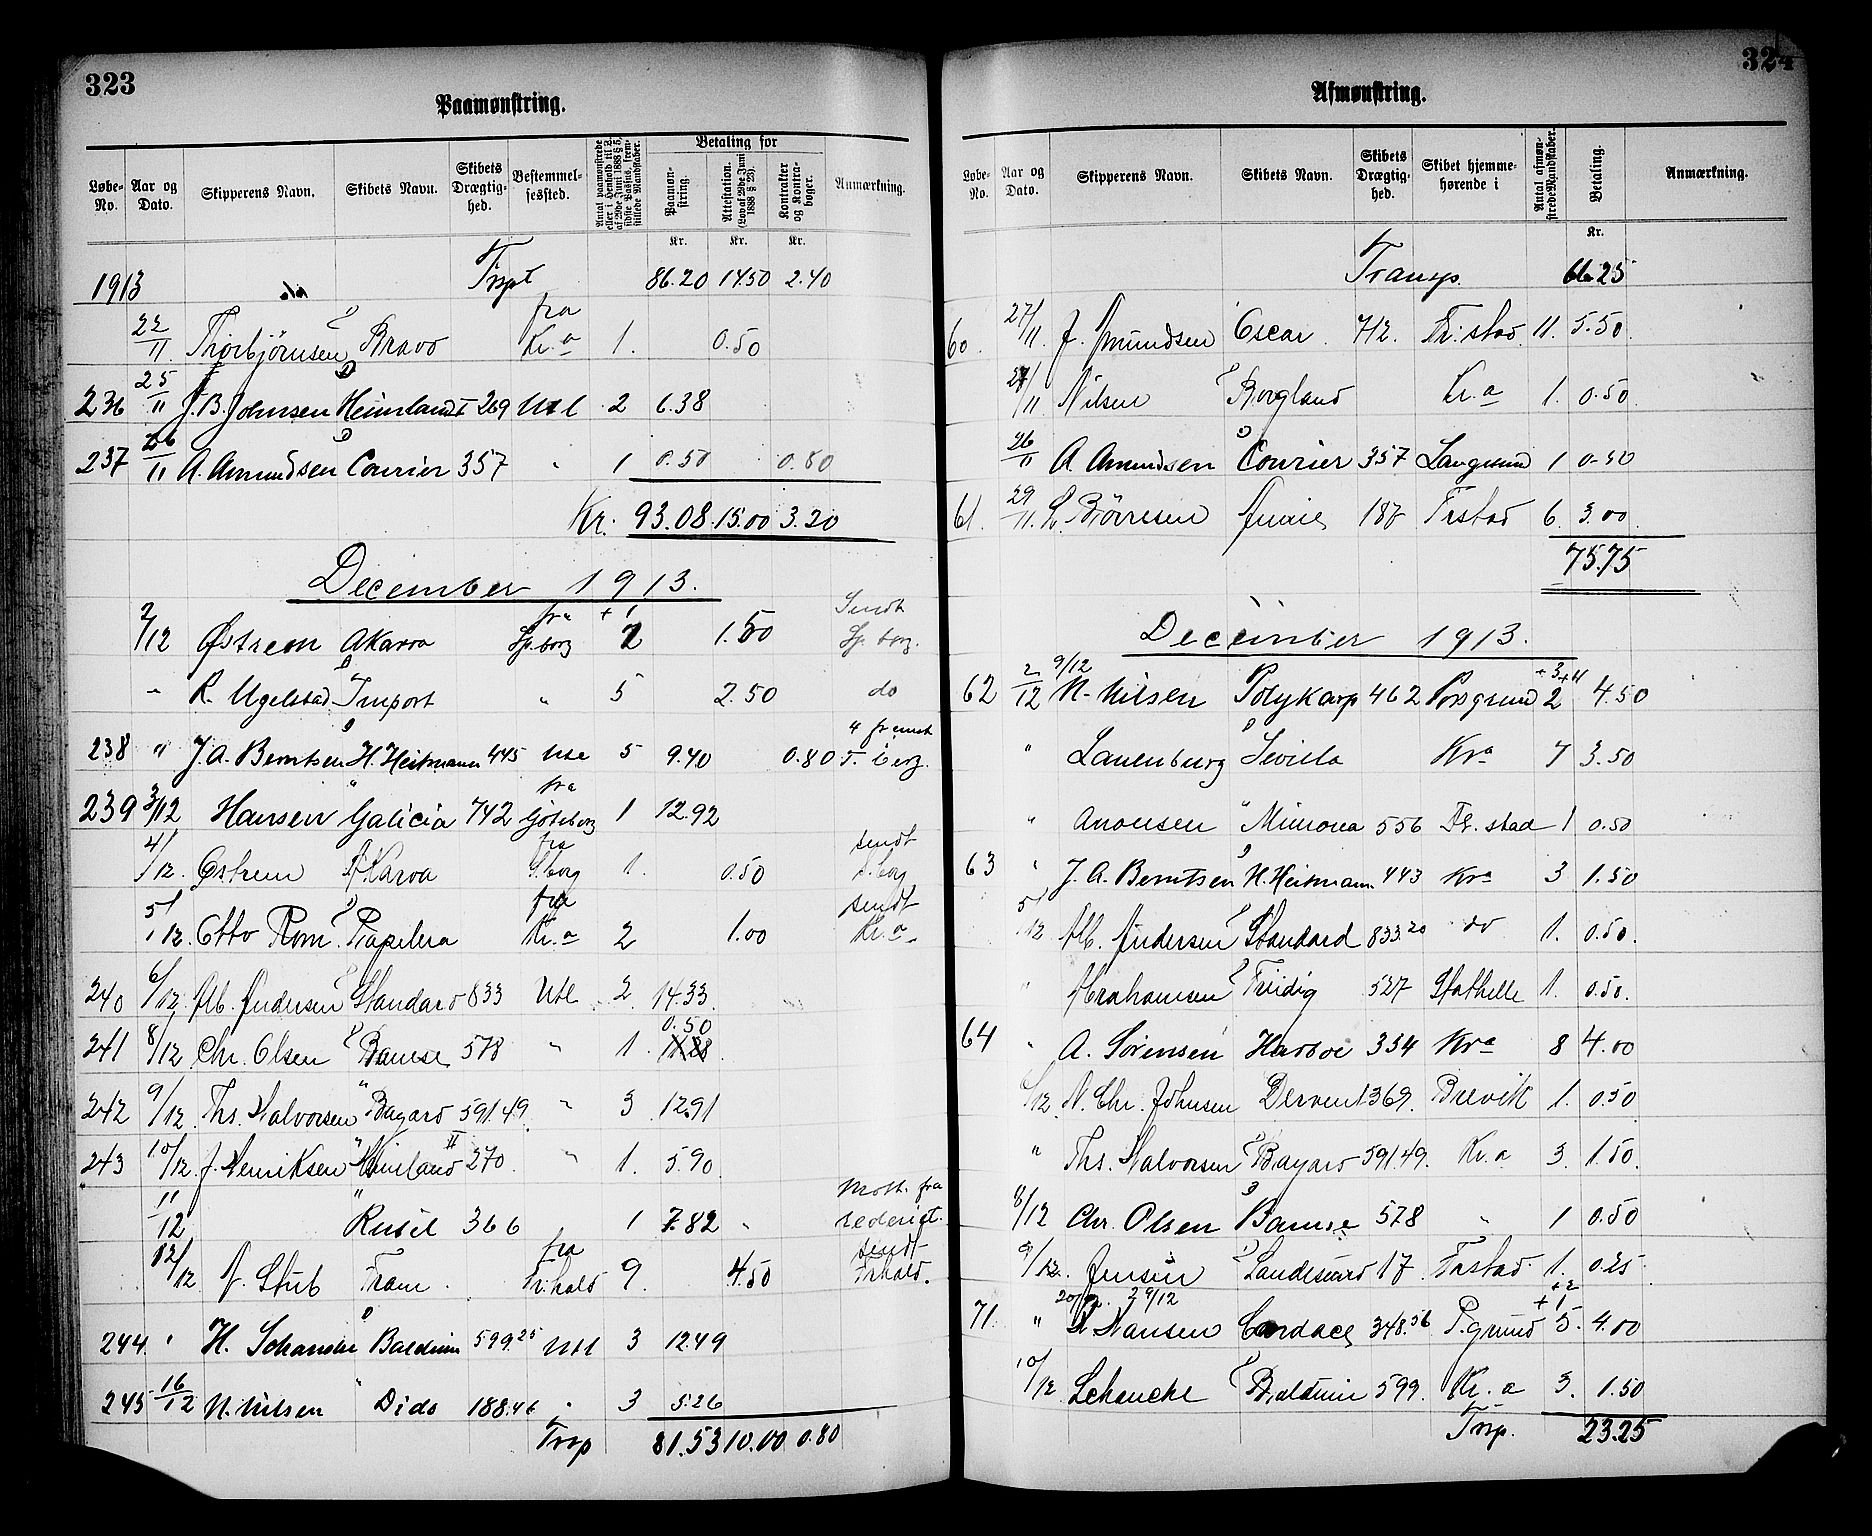 323
Paamønstring.
Løbe-No. Aar og Dato. Skipperens Navn. Skibets Navn. Skibets Drægtig-hed. Bestemmel-sessted. Antal paamønstrede eller i Henhold til L. af 29de Juni 1888 § 5, sidste Passus, frem-stillede Mandskaber. Betaling for Paamøn-string. Attestation. (Lov af 29de Juni 1888 § 23). Kontrakter og Kontra-bøger. Anmærkning.
Kr. Kr. Kr.
1913 Trspt 86.20 14.50 2.40
22/11 Thorbjörnsen D Bravo fra Kr.a 1. 0.50
236 25/11 J. B. Johnsen D Heimland I 269 Utl 2 6.38
237 26/11 A. Amundsen D Courier 357 " 1 0.50 0.80
Kr. 93.08 15.00 3.20
December 1913.
2/12 Østrem Akaroa fra Sp.borg +1 2 1.50 Sendt Sp.borg.
" R. Ugelstad D Import " 5 2.50 do
238 " J. A. Berntsen D H. Heitmann 445 Utl 5 9.40 0.80
239 3/12 Hansen " Galicia 742 fra Göteborg 1 12.92
4/12. Østrem Akaroa fra S.borg 1. 0.50 sendt S.borg
5/12. Otto Rom. D Papilera fra Kr.a 2 1.00 sendt Kr.a
240 6/12 Alb. Andersen D Standard 833 Utl 2. 14.33
241 8/12 Chr. Olsen D Bamse 578 " 1. 0.50
242 9/12 Ths. Halvorsen " Bayard 591.49. " 3 12.91
243 10/12. J. Henriksen " Heimland II 270. " 1. 5.90
11/12 " Rusil 366 1 7.82 " Modt. fra rederiet.
12/12 A. Stub Fram. fra Fr.hald 9. 4.50 sendt Frhald.
244. " H. Schancke D Balduin 599.25 Utl 3 12.49
245 16/12 N. Nilsen " Dido 188.46 " 3 5.26
Trsp 81.53 10.00 0.80
324
Afmønstring.
Løbe-No. Aar og Dato. Skipperens Navn. Skibets Navn. Skibets Drægtig-hed. Skibet hjemme-hørende i Antal afmøn-strede Mandskaber. Betaling. Anmærkning.
Kr.
Transp. 66.25
60. 27/11. J. Amundsen Oscar. 712. Fr.stad. 11. 5.50.
/11 Nilsen D Borgland Kr.a 1. 0.50.
26/11 A. Amundsen D Courier 357 Langesund 1 0.50
61. 29/11. L. Børresen Annie 187 Frstad 6. 3.00.
75.75
December 1913.
62 2/12 9/12 N. Nilsen Polykarp 462 Porsgrund +3+4 2 4.50
" Lauenburg D Sevilla Kra 7 3.50
" Anonsen " Mimona 556 Fr.stad 1 0.50
63 " J. A. Berntsen D H. Heitmann 443 Kra 3 1.50
5/12 Alb. Andersen D Standard 833.20 do 1. 0.50.
" Abrahamsen D Fridig 527 Stathelle 1. 0.50.
64 " A. Sörensen Harboe 334 Kra 8 4.00
/12 N. Chr. Johnsen Dervent 1369. Brevik 1. 0.50
" Ths. Halvorsen D Bayard 591.49. Kr.a 3. 1.50.
8/12 Chr. Olsen D Bamse 578 " 1 0.50
9/12. Jensen D Landesund 17. Frstad. 1. 0.25
71. " Hansen Candace 348.56 P.grund +1 +2 5. 4.00
10/12 Schencke D Balduin 599. Kr.a 3. 1.50
Trsp. 23.25